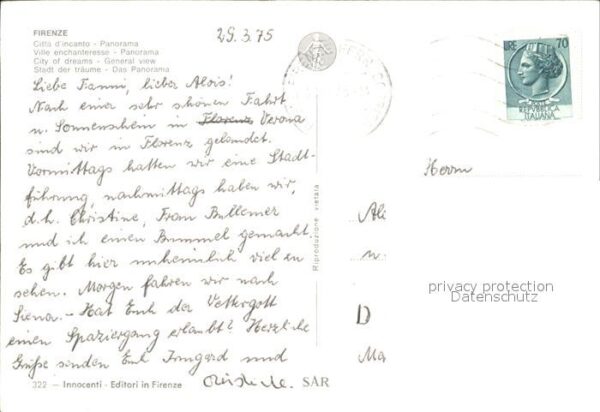 FIRENZE
Città d'incanto - Panorama
Ville enchanteresse - Panorama
City of dreams - General view
Stadt der träume - Das Panorama
29.3.75
Liebe Fanni, lieber Alois!
Nach einer sehr schönen Fahrt
u. Sonnenschein in Florenz Verona
sind wir in Florenz gelandet.
Vormittags hatten wir eine Stadt-
führung, nachmittags haben wir,
d.h. Christine, Frau
und ich einen Bummel gemacht.
Es gibt hier unheimlich viel zu
sehen. Morgen fahren wir nach
Siena. - Hat Euch der Wettergott
einen Spaziergang erlaubt? Herzliche
Grüße senden Euch Irmgard und
322 - Innocenti - Editori in Firenze
SAR
Riproduzione vietata
LIRE 70
REPUBBLICA
ITALIANA
Herrn
Ali
D
Ma
privacy protection
Datenschutz